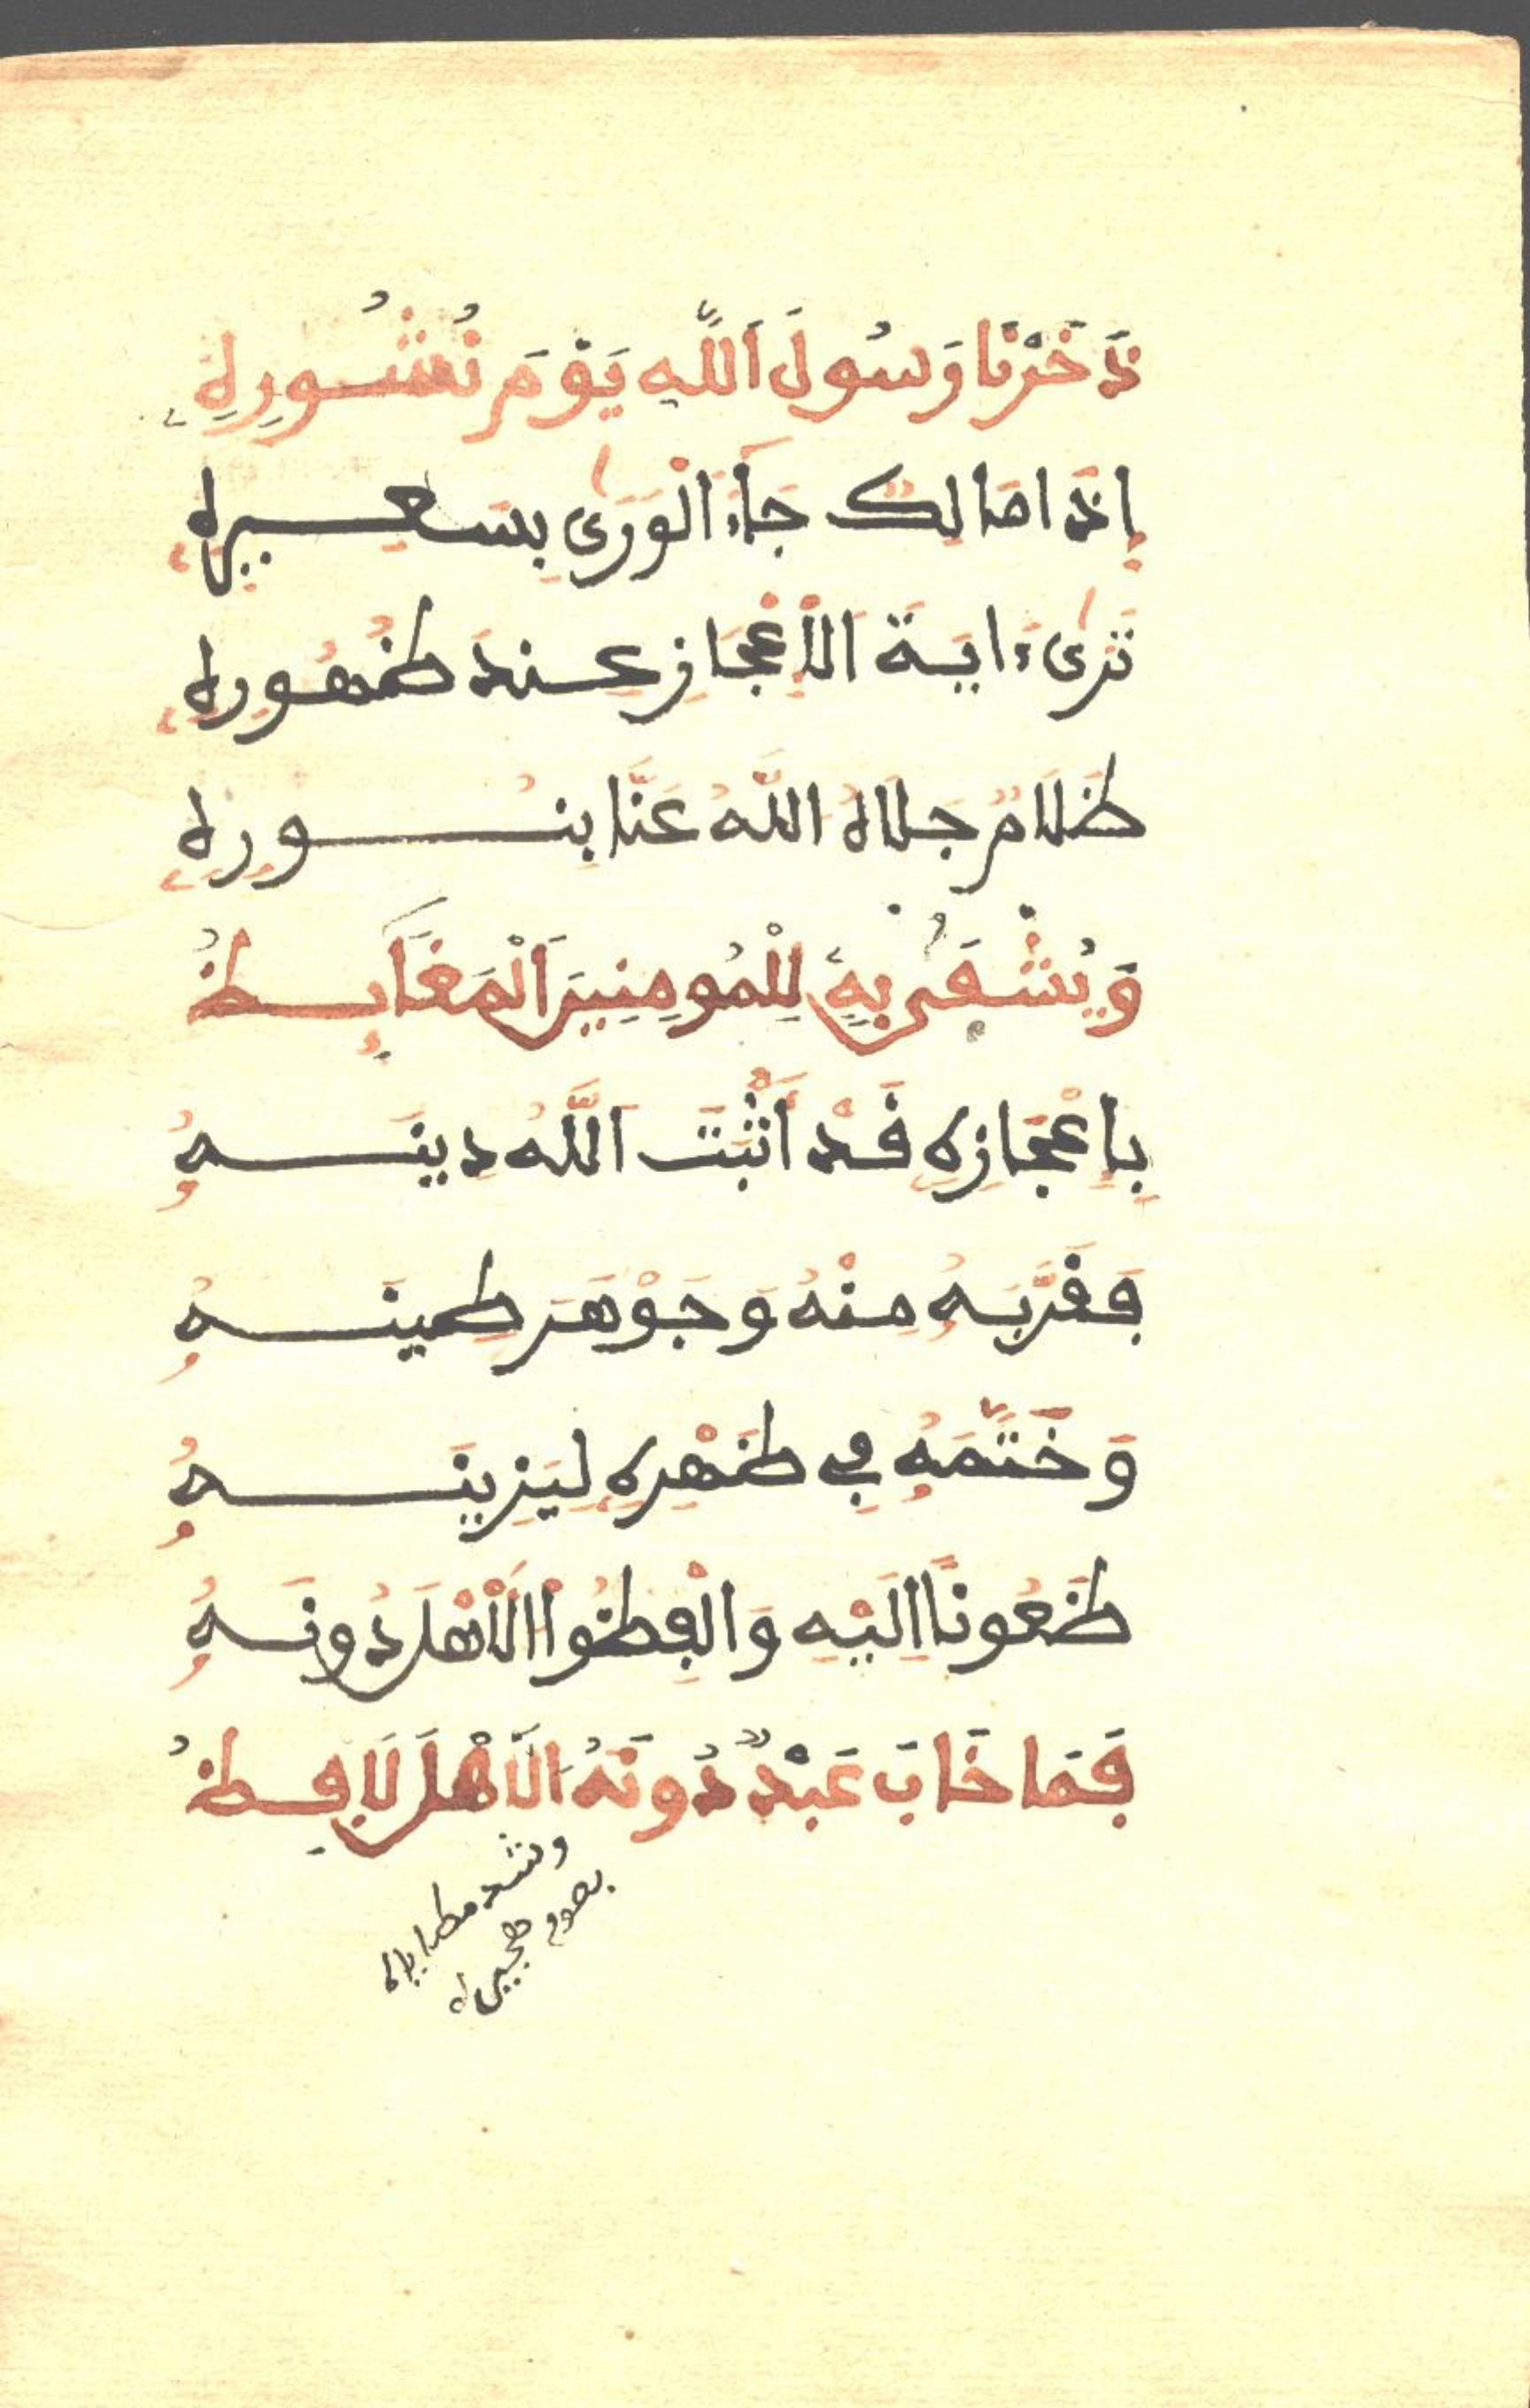 ذَخَرْنَا رَسُولَ اَللَّهِ يَوْمَ نُشُورِهِ
إِذَا مَالِكٌ جَآءَ اَلْوَرَىٰ بِسَعِيرِهِ
تَرَىٰ ءَايَةَ اَلْإِعْجَازِ عِندَ ظُهُورِهِ
ظَلَامٌ جَلَاهُ اللَّهُ عَنَّا بِنُورِهِ
وَيُشْفَىٰ بِهِ لِلْمُومِنِينَ اَلْمَغَآئِظُ
بِإِعْجَازِهِ قَدْ أَثْبَتَ اَللَّهُ دِينَهُ
فَقَرَّبَهُ مِنْهُ وَجَوْهَرَ طِينَهُ
وَخَتَّمَهُ فِي ظَهْرِهِ لِيَزِينَهُ
ظَعُونًا إِلَيْهِ وَالْفِظُوا اَلْأَهْلَ دُونَهُ
فَمَا خَابَ عَبْدٌ دُونَهُ اَلَاهْلَ لَافِظُ